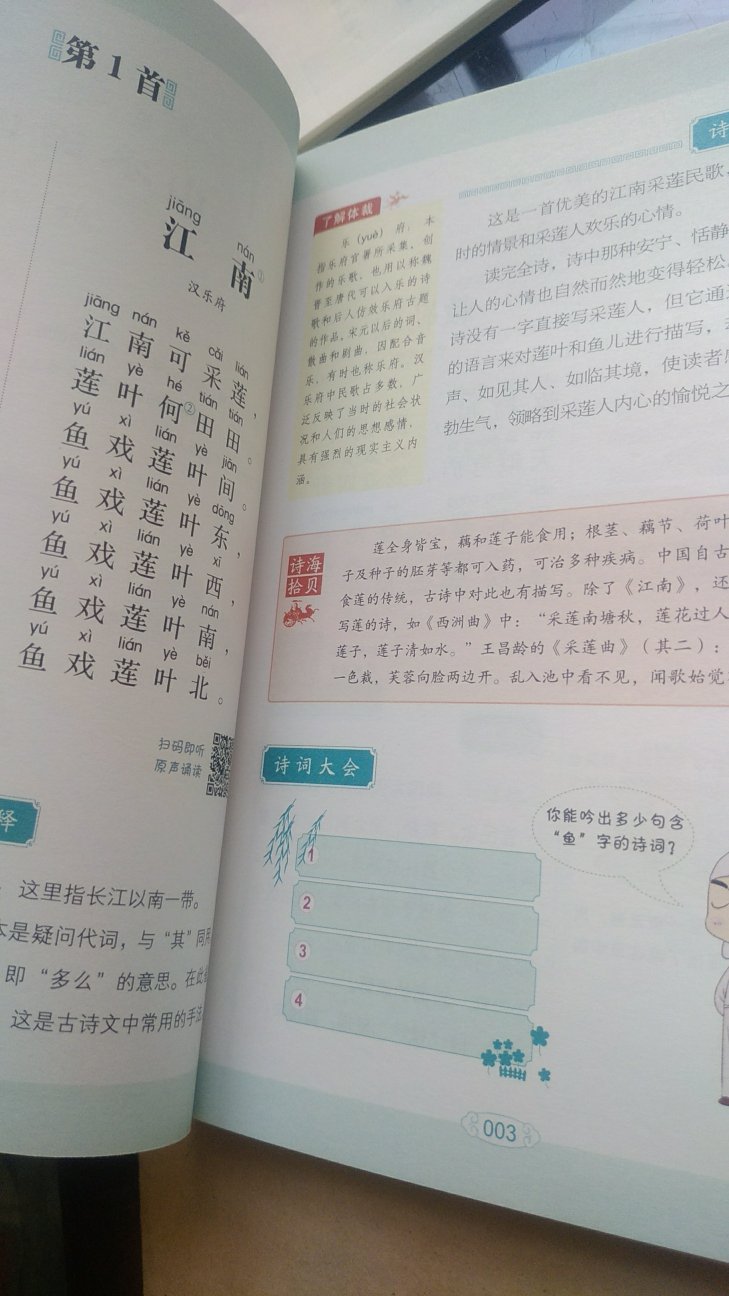 第1首
jiāng nán
江南①
汉乐府
jiāng nán kě cǎi lián
江南可采莲，
lián yè hé tián tián
莲叶何②田田。
yú xì lián yè jiān
鱼戏莲叶间。
yú xì lián yè dōng
鱼戏莲叶东，
yú xì lián yè xī
鱼戏莲叶西，
yú xì lián yè nán
鱼戏莲叶南，
yú xì lián yè běi
鱼戏莲叶北。
扫码即听
原声诵读
释
这里指长江以南一带。
本是疑问代词，与“其”同用
即“多么”的意思。在此
这是古诗文中常用的手法
诗
了解体裁
乐（yuè）府：本
指乐府官署所采集、创
作的乐歌，也用以称魏
晋至唐代可以入乐的诗
歌和后人仿效乐府古题
的作品。宋元以后的词、
散曲和剧曲，因配合音
乐，有时也称乐府。汉
乐府中民歌占多数，广
泛反映了当时的社会状
况和人们的思想感情，
具有强烈的现实主义内
涵。
这是一首优美的江南采莲民歌，
时的情景和采莲人欢乐的心情。
读完全诗，诗中那种安宁、恬静
让人的心情也自然而然地变得轻松
诗没有一字直接写采莲人，但它通
的语言来对莲叶和鱼儿进行描写，
声、如见其人、如临其境，使读者
勃生气，领略到采莲人内心的愉悦之
诗海
拾贝
莲全身皆宝，藕和莲子能食用；根茎、藕节、荷叶
子及种子的胚芽等都可入药，可治多种疾病。中国自古
食莲的传统，古诗中对此也有描写。除了《江南》，还
写莲的诗，如《西洲曲》中：“采莲南塘秋，莲花过人
莲子，莲子清如水。”王昌龄的《采莲曲》（其二）：
一色裁，芙蓉向脸两边开。乱入池中看不见，闻歌始觉
诗词大会
你能吟出多少句含
“鱼”字的诗词？
1
2
3
4
003